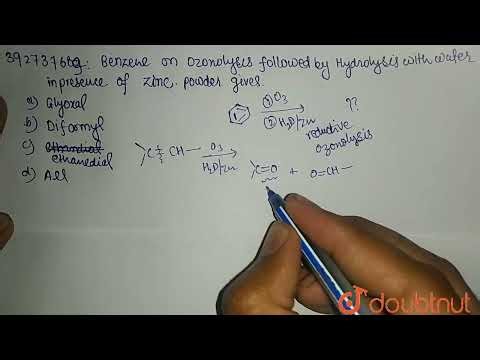 392737600: Benzene on Ozonolysis followed by Hydrolysis with water
in presence of zinc powder gives.
a) Glyoxal
b) Diformyl
c) ethanedial
d) All
① O3
② H2O/Zn
??
reductive
ozonolysis
>C=CH— O3
H2O/Zn
>C=O + O=CH—
doubtnut